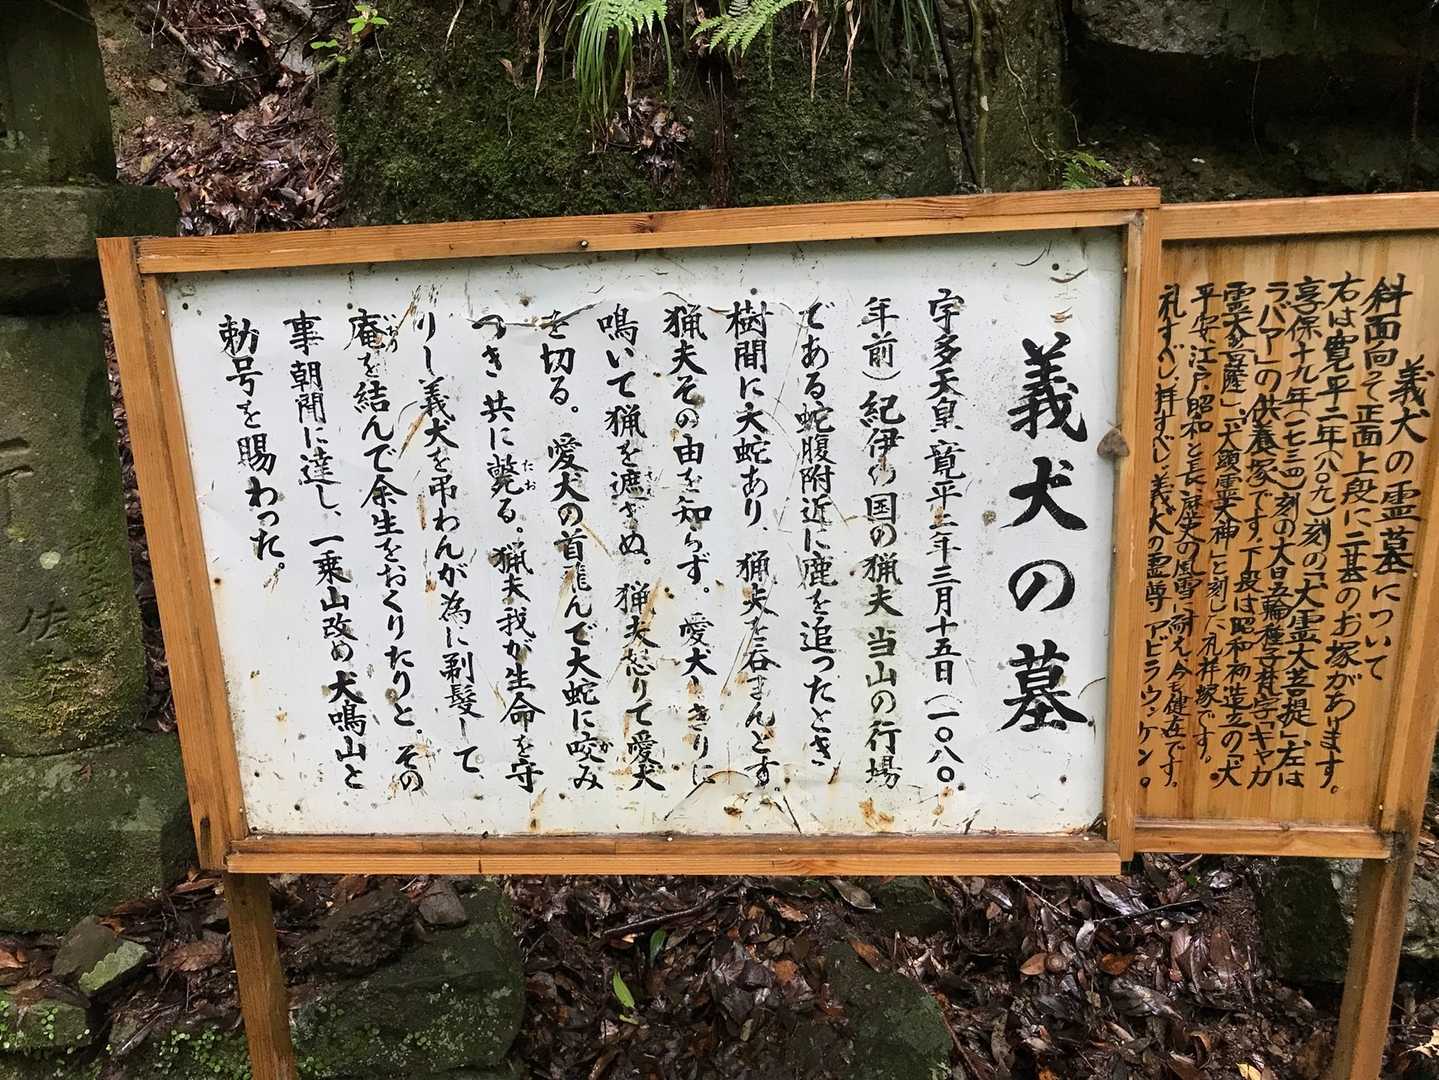 義犬の霊墓について
斜面向って正面上段に二基のお塚があります。
右は寛平二年(八〇九)刻の「犬霊大菩提」、左は
享保十九年(一七三四)刻の大日五輪種子梵字「キャカ
ラバア」の供養塚です。下段は昭和初造立の「犬
霊大菩薩」、「犬鎮霊犬神」と刻しに礼拝塚です。
平安、江戸、昭和と長い歴史の風雪に耐え今も健在です。
礼すべし、拝すべし、義犬の霊尊 アビラウンケン。
義犬の墓
宇多天皇寛平二年三月十五日(一〇八〇
年前)紀伊の国の猟夫当山の行場
である蛇腹附近に鹿を追ったとき
樹間に大蛇あり、猟夫を呑まんとす。
猟夫その由を知らず。愛犬しきりに
鳴いて猟を遮ぎぬ。猟夫怒りて愛犬
を切る。愛犬の首飛んで大蛇に咬み
つき共に斃る。猟夫我が生命を守
りし義犬を弔わんが為に剃髪して、
庵を結んで余生をおくりたりと。その
事朝聞に達し、一乗山改め犬鳴山と
勅号を賜わった。